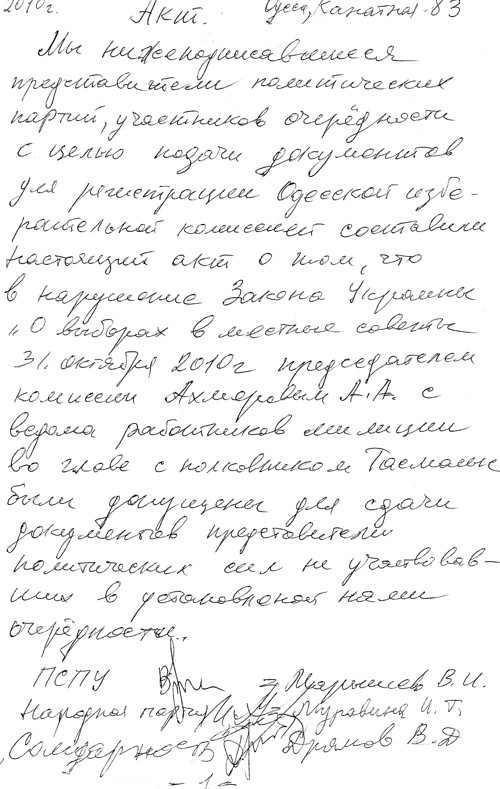 2010г. Акт. Одесса, Канатная 83
Мы нижеподписавшиеся
представители политических
партий, участников очерёдности
с целью подачи документов
для регистрации Одесской избе-
рательной комиссией составили
настоящий акт о том, что
в нарушение Закона Украины
„О выборах в местные советы
31. октября 2010г председателем
комиссии Ахмеровым А.А. с
ведома работников милиции
во главе с полковником
были допущены для сдачи
документов представители
политических сил не участвовав-
ших в установленой нами
очерёдности.
ПСПУ В.И.
Народная партия Муравина И. Т.
Солидарность Дрямов В.Д
- 1 -